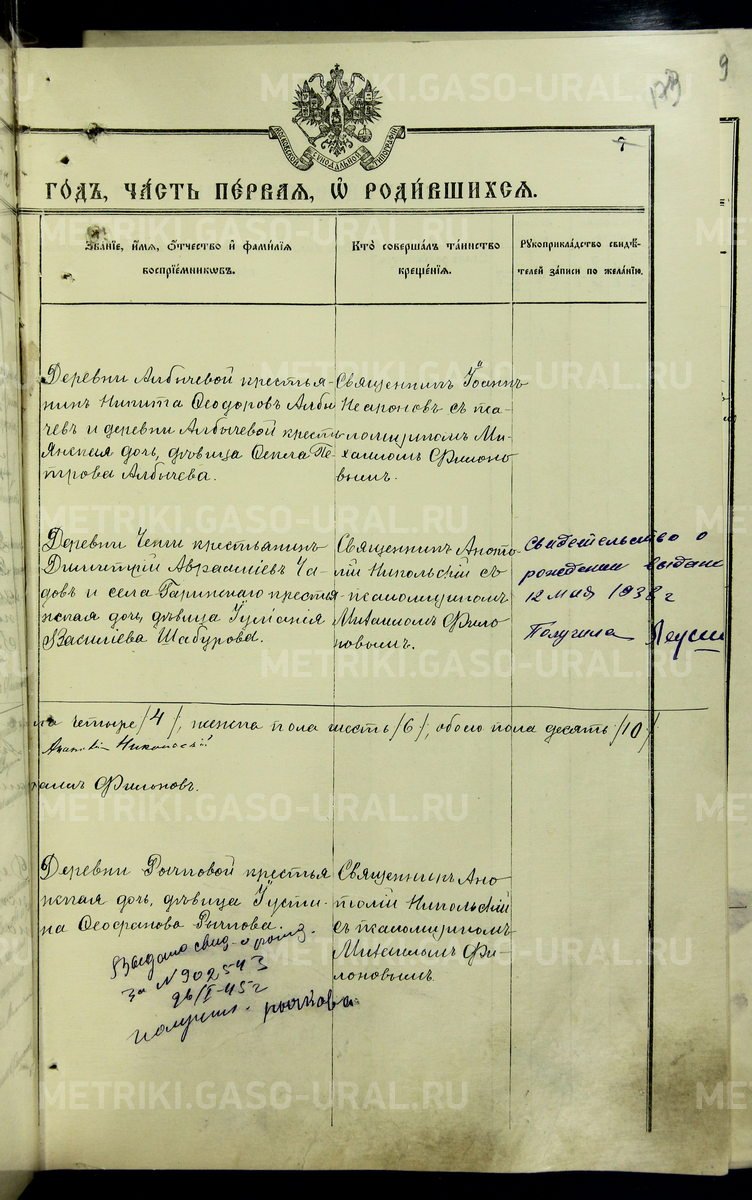 9
173
МОСКОВСКОЙ СѴНОДАЛЬНОЙ ТИПОГРАФІИ
ГОДЪ, ЧАСТЬ ПЕРВАЯ, Ѡ РОДИВШИХСЯ.
Званіе, имя, отчество и фамилія воспріемниковъ.
Кто совершалъ таинство крещенія.
Рукоприкладство свидѣтелей записи по желанію.
Деревни Албычевой крестья-
нинъ Никита Ѳеодоровъ Албы
чевъ и деревни Албычевой кресть
янская дочь, дѣвица Ѳекла Пе-
трова Албычева.
Священникъ Іоаннъ
Неароновъ съ пса-
ломщикомъ Ми-
хаиломъ Филоно
вымъ.
Деревни Ченги крестьянинъ
Димитрій Авраамiевъ Ча-
довъ и села Гаринскаго крестья
нская дочь, дѣвица Іуліанія
Васильева Шабурова.
Священникъ Анато
лій Никольскій съ
псаломщикомъ
Михаиломъ Фило
новымъ.
свидетельство о
рождении выдано
12 мая 1938 г
Получила
ла четыре /4/, женска пола шесть /6/, обоего пола десять /10/
Анатолій Никольскій
хаилъ Филоновъ.
Деревни Рычковой крестья
нская дочь, дѣвица Іусти-
на Ѳеофанова Рычкова.
Священникъ Ана
толій Никольскій
съ псаломщикомъ
Михаиломъ Фи-
лоновымъ.
Выдано свид-о о рожд.
за N 902543
26/I-45 г
получил. Рычкова
METRIKI.GASO-URAL.RU